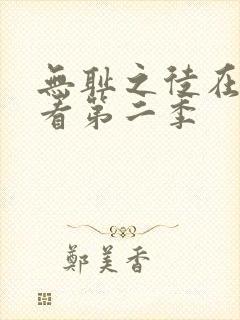 無耻之徒在
看第二季
鄭美香